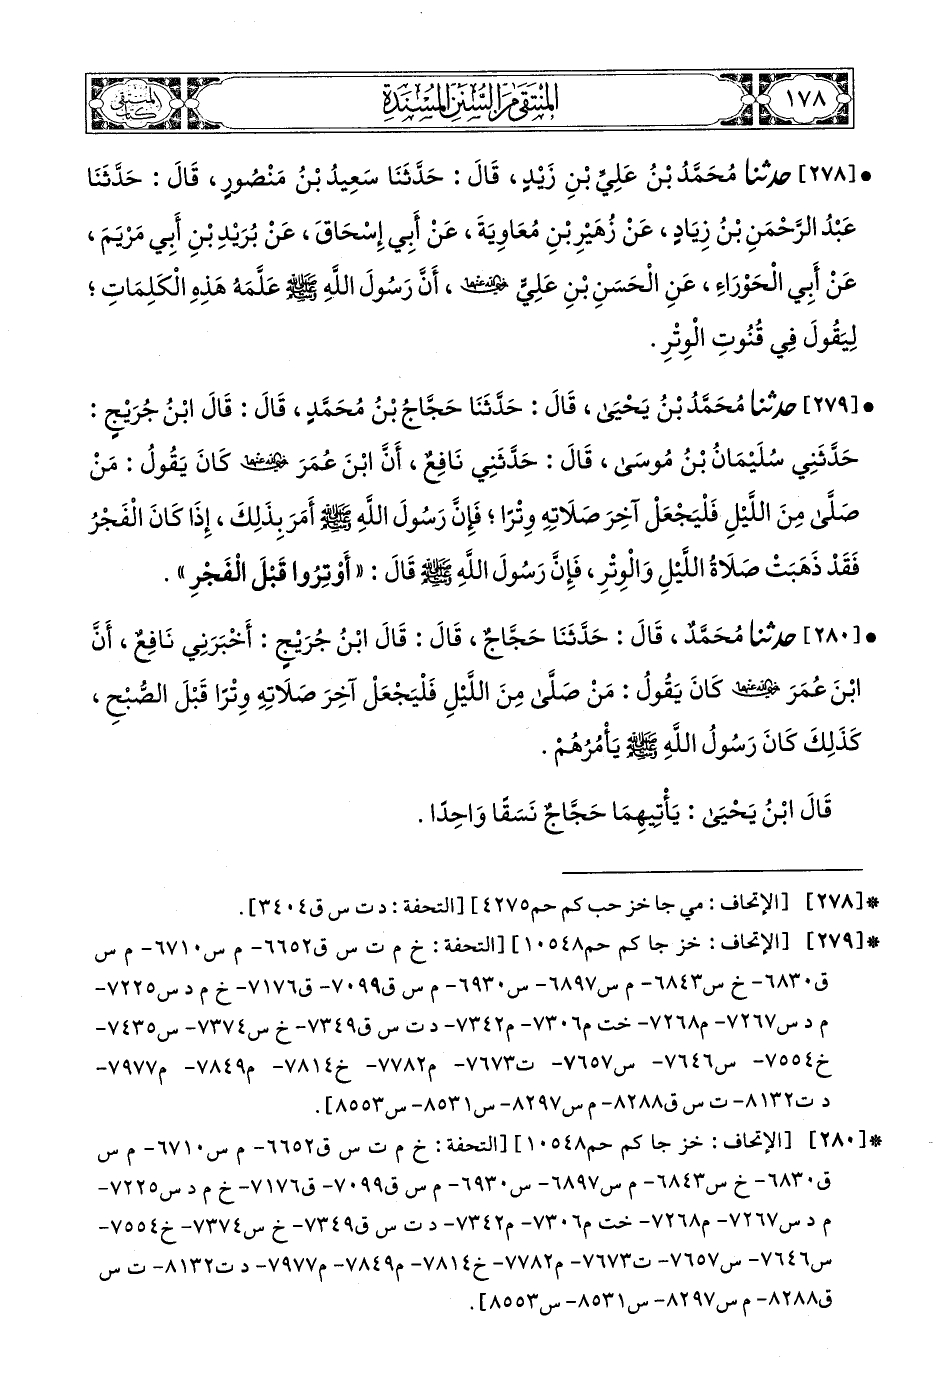 ١٧٨
المنتقى من السنن المسندة
كتاب المنتقى
• [٢٧٨] حدثنا مُحَمَّدُ بْنُ عَلِيِّ بْنِ زَيْدٍ ، قَالَ : حَدَّثَنَا سَعِيدُ بْنُ مَنْصُورٍ ، قَالَ : حَدَّثَنَا
عَبْدُ الرَّحْمَنِ بْنُ زِيَادٍ ، عَنْ زُهَيْرِ بْنِ مُعَاوِيَةَ ، عَنْ أَبِي إِسْحَاقَ ، عَنْ بُرَيْدِ بْنِ أَبِي مَرْيَمَ ،
عَنْ أَبِي الْحَوْرَاءِ ، عَنِ الْحَسَنِ بْنِ عَلِيٍّ رضي الله عنهما ، أَنَّ رَسُولَ اللَّهِ ﷺ عَلَّمَهُ هَذِهِ الْكَلِمَاتِ ؛
لِيَقُولَ فِي قُنُوتِ الْوِتْرِ .
• [٢٧٩] حدثنا مُحَمَّدُ بْنُ يَحْيَىٰ ، قَالَ : حَدَّثَنَا حَجَّاجُ بْنُ مُحَمَّدٍ ، قَالَ : قَالَ ابْنُ جُرَيْجٍ :
حَدَّثَنِي سُلَيْمَانُ بْنُ مُوسَىٰ ، قَالَ : حَدَّثَنِي نَافِعٌ ، أَنَّ ابْنَ عُمَرَ رضي الله عنهما كَانَ يَقُولُ : مَنْ
صَلَّىٰ مِنَ اللَّيْلِ فَلْيَجْعَلْ آخِرَ صَلَاتِهِ وِتْرًا ؛ فَإِنَّ رَسُولَ اللَّهِ ﷺ أَمَرَ بِذَلِكَ ، إِذَا كَانَ الْفَجْرُ
فَقَدْ ذَهَبَتْ صَلَاةُ اللَّيْلِ وَالْوِتْرِ ، فَإِنَّ رَسُولَ اللَّهِ ﷺ قَالَ : «أَوْتِرُوا قَبْلَ الْفَجْرِ» .
• [٢٨٠] حدثنا مُحَمَّدٌ ، قَالَ : حَدَّثَنَا حَجَّاجٌ ، قَالَ : قَالَ ابْنُ جُرَيْجٍ : أَخْبَرَنِي نَافِعٌ ، أَنَّ
ابْنَ عُمَرَ رضي الله عنهما كَانَ يَقُولُ : مَنْ صَلَّىٰ مِنَ اللَّيْلِ فَلْيَجْعَلْ آخِرَ صَلَاتِهِ وِتْرًا قَبْلَ الصُّبْحِ ،
كَذَلِكَ كَانَ رَسُولُ اللَّهِ ﷺ يَأْمُرُهُمْ .
قَالَ ابْنُ يَحْيَىٰ : يَأْتِيهِمَا حَجَّاجٌ نَسَقًا وَاحِدًا .
*[٢٧٨] [الإتحاف : مي جا خز حب كم حم٤٢٧٥] [التحفة : د ت س ق٣٤٠٤].
*[٢٧٩] [الإتحاف : خز جا كم حم١٠٥٤٨] [التحفة : خ م ت س ق٦٦٥٢- م س٦٧١٠- م س
ق٦٨٣٠- خ س٦٨٤٣- م س٦٨٩٧- س٦٩٣٠- م س ق٧٠٩٩- ق٧١٧٦- خ م د س٧٢٢٥-
م د س٧٢٦٧- م٧٢٦٨- خت م٧٣٠٦- م٧٣٤٢- د ت س ق٧٣٤٩- خ س٧٣٧٤- س٧٤٣٥-
خ٧٥٥٤- س٧٦٤٦- س٧٦٥٧- ت٧٦٧٣- م٧٧٨٢- خ٧٨١٤- م٧٨٤٩- م٧٩٧٧-
د ت٨١٣٢- ت س ق٨٢٨٨- م س٨٢٩٧- س٨٥٣١- س٨٥٥٣].
*[٢٨٠] [الإتحاف : خز جا كم حم١٠٥٤٨] [التحفة : خ م ت س ق٦٦٥٢- م س٦٧١٠- م س
ق٦٨٣٠- خ س٦٨٤٣- م س٦٨٩٧- س٦٩٣٠- م س ق٧٠٩٩- ق٧١٧٦- خ م د س٧٢٢٥-
م د س٧٢٦٧- م٧٢٦٨- خت م٧٣٠٦- م٧٣٤٢- د ت س ق٧٣٤٩- خ س٧٣٧٤- خ٧٥٥٤-
س٧٦٤٦- س٧٦٥٧- ت٧٦٧٣- م٧٧٨٢- خ٧٨١٤- م٧٨٤٩- م٧٩٧٧- د ت٨١٣٢- ت س
ق٨٢٨٨- م س٨٢٩٧- س٨٥٣١- س٨٥٥٣].